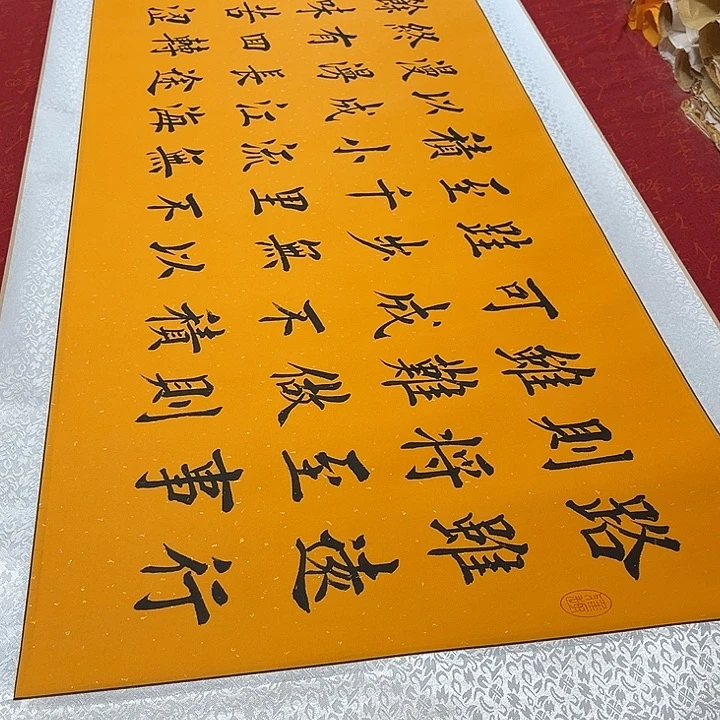 路雖遠行
則將至事
雖難做則
可成不積
跬步無以
至千里不
積小流無
以成江海
漫漫長途
終有回轉
餘味苦澀